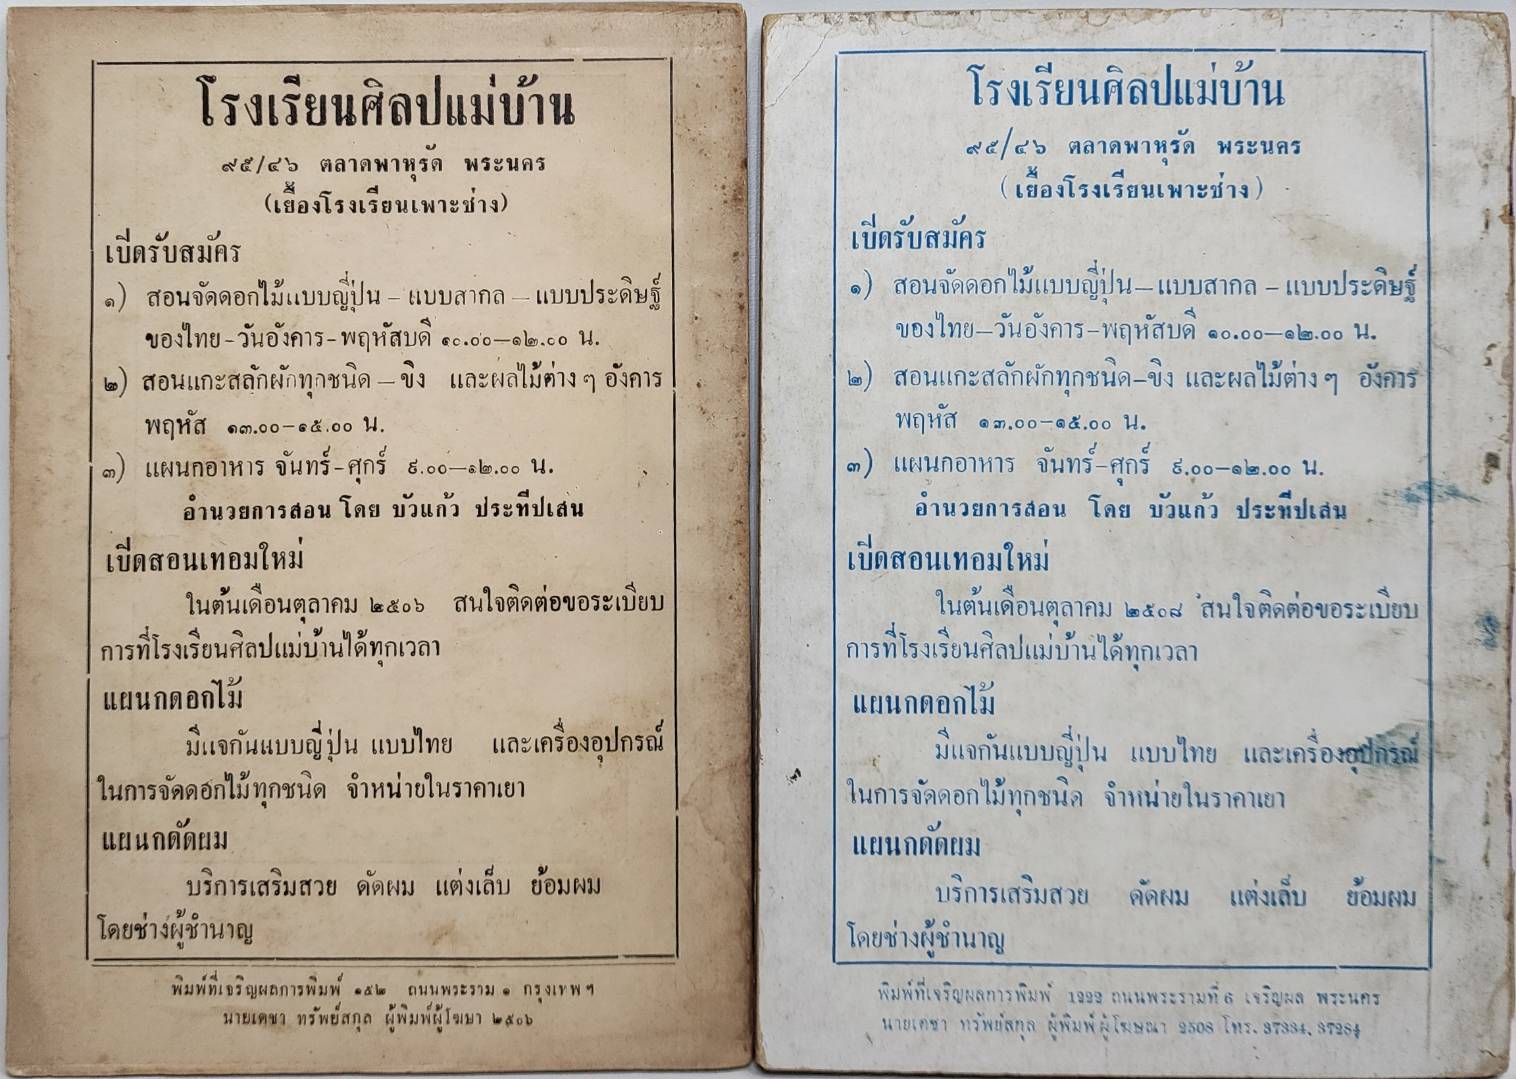 โรงเรียนศิลปแม่บ้าน
๙๕/๔๖ ตลาดพาหุรัด พระนคร
(เยื้องโรงเรียนเพาะช่าง)
เปิดรับสมัคร
๑) สอนจัดดอกไม้แบบญี่ปุ่น – แบบสากล – แบบประดิษฐ์
ของไทย - วันอังคาร - พฤหัสบดี ๑๐.๐๐—๑๒.๐๐ น.
๒) สอนแกะสลักผักทุกชนิด – ขิง และผลไม้ต่าง ๆ อังการ
พฤหัส ๑๓.๐๐–๑๕.๐๐ น.
๓) แผนกอาหาร จันทร์ - ศุกร์ ๙.๐๐—๑๒.๐๐ น.
อำนวยการสอน โดย บัวแก้ว ประทีปเสน
เปิดสอนเทอมใหม่
ในต้นเดือนตุลาคม ๒๕๐๖ สนใจติดต่อขอระเบียบ
การที่โรงเรียนศิลปแม่บ้านได้ทุกเวลา
แผนกดอกไม้
มีแจกันแบบญี่ปุ่น แบบไทย และเครื่องอุปกรณ์
ในการจัดดอกไม้ทุกชนิด จำหน่ายในราคาเยา
แผนกดัดผม
บริการเสริมสวย ดัดผม แต่งเล็บ ย้อมผม
โดยช่างผู้ชำนาญ
พิมพ์ที่เจริญผลการพิมพ์ ๑๕๒ ถนนพระราม ๑ กรุงเทพฯ
นายเดชา ทรัพย์สกุล ผู้พิมพ์ผู้โฆษา ๒๕๐๖
โรงเรียนศิลปแม่บ้าน
๙๕/๔๖ ตลาดพาหุรัด พระนคร
(เยื้องโรงเรียนเพาะช่าง)
เปิดรับสมัคร
๑) สอนจัดดอกไม้แบบญี่ปุ่น – แบบสากล – แบบประดิษฐ์
ของไทย–วันอังคาร–พฤหัสบดี ๑๐.๐๐—๑๒.๐๐ น.
๒) สอนแกะสลักผักทุกชนิด–ขิง และผลไม้ต่าง ๆ อังการ
พฤหัส ๑๓.๐๐–๑๕.๐๐ น.
๓) แผนกอาหาร จันทร์-ศุกร์ ๙.๐๐–๑๒.๐๐ น.
อำนวยการสอน โดย บัวแก้ว ประทีปเสน
เปิดสอนเทอมใหม่
ในต้นเดือนตุลาคม ๒๕๐๘ สนใจติดต่อขอระเบียบ
การที่โรงเรียนศิลปแม่บ้านได้ทุกเวลา
แผนกดอกไม้
มีแจกันแบบญี่ปุ่น แบบไทย และเครื่องอุปกรณ์
ในการจัดดอกไม้ทุกชนิด จำหน่ายในราคาเยา
แผนกดัดผม
บริการเสริมสวย ดัดผม แต่งเล็บ ย้อมผม
โดยช่างผู้ชำนาญ
พิมพ์ที่เจริญผลการพิมพ์ 1222 ถนนพระรามที่ 6 เจริญผล พระนคร
นายเดชา ทรัพย์สกุล ผู้พิมพ์ผู้โฆษณา 2508 โทร. 37334, 37284